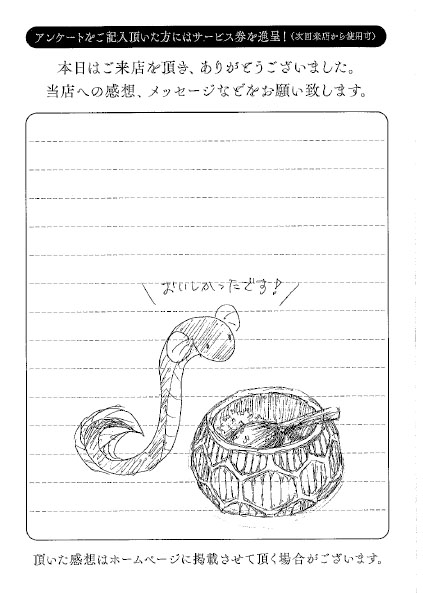 アンケートをご記入頂いた方にはサービス券を進呈!(次回来店から使用可)
本日はご来店を頂き、ありがとうございました。
当店への感想、メッセージなどをお願い致します。
おいしかったです!
頂いた感想はホームページに掲載させて頂く場合がございます。